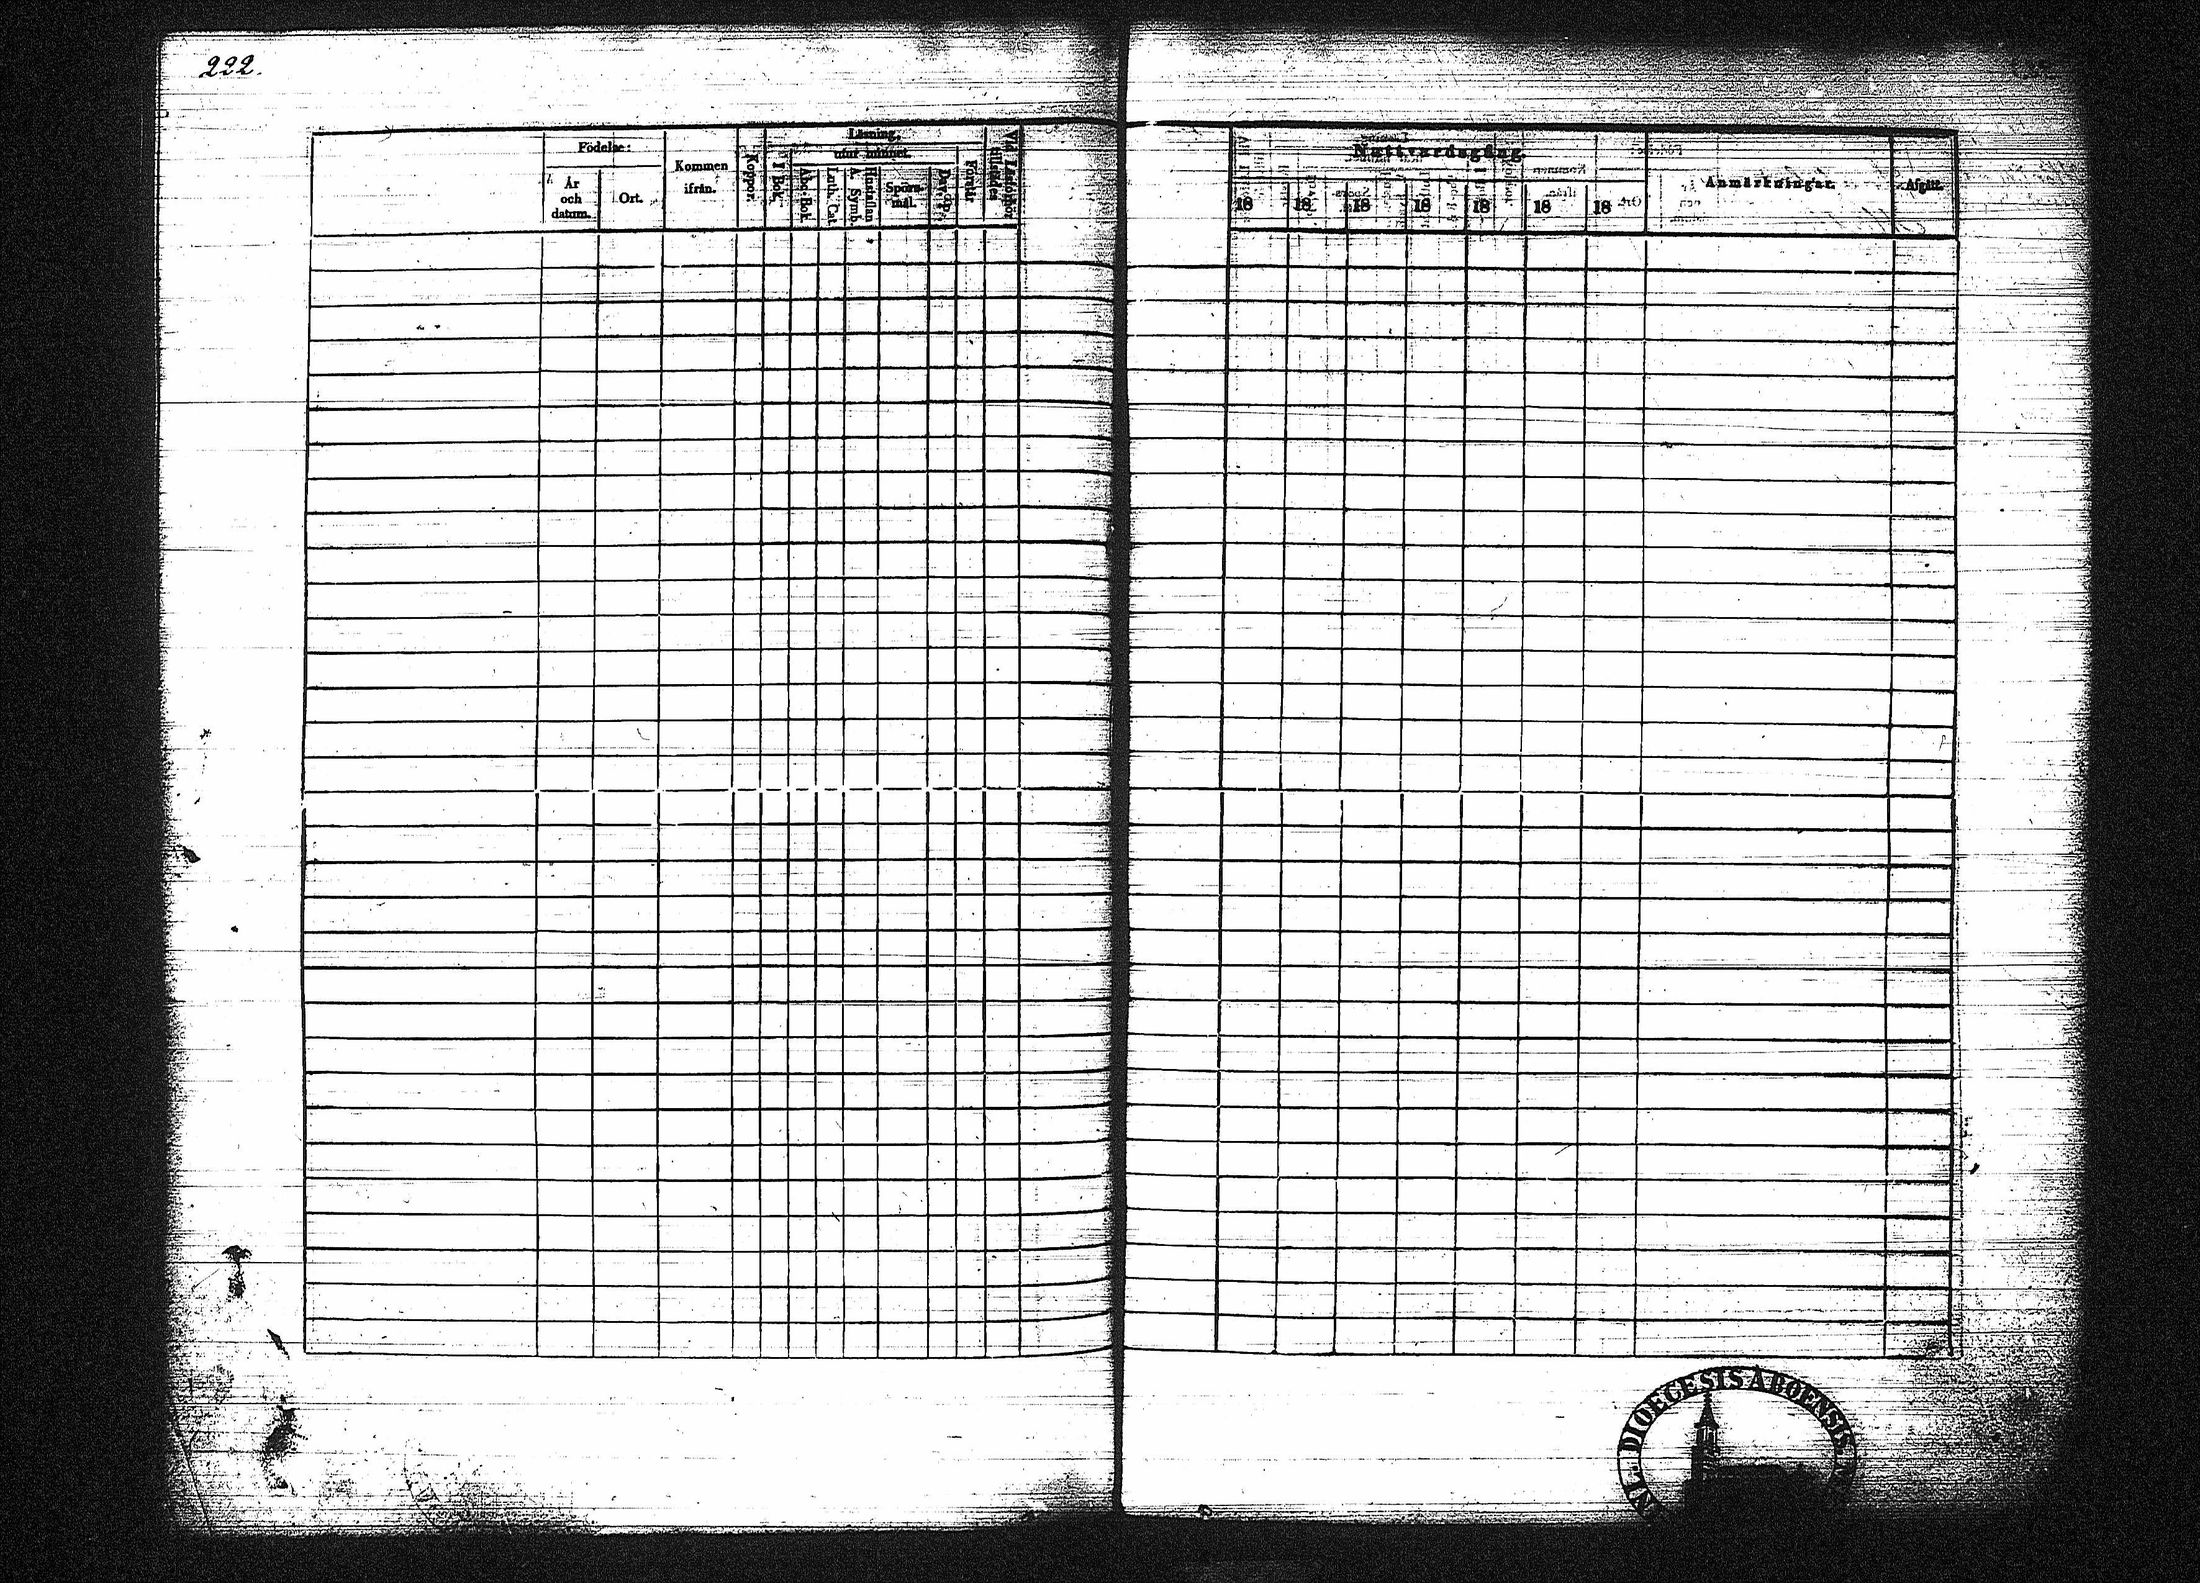 222.
Födelse:
År och datum.
Ort.
Kommen ifrån.
Koppor.
Läsning,
I Bok.
utur minnet.
Abc-Bok.
Luth. Cat.
Hustaflan A. Symb.
Spörs-mål.
Dav. Ps.
Förstår
Vid Läsförhör tillstädes
Nattvardsgång.
18 18 18 18 18 18 18
Anmärkningar.
Afgått.
DIOECESIS ABOENSIS